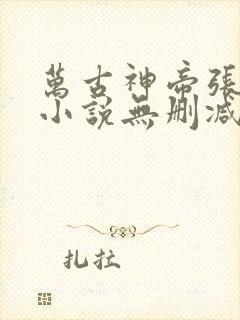 萬古神帝張
小說無刪減
扎拉